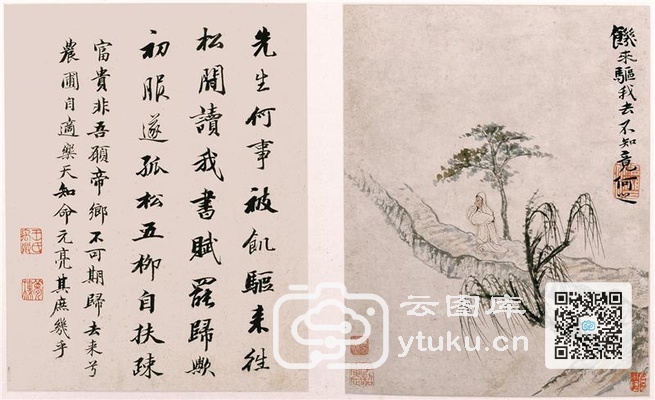 饑来驅我去不知竟何之
先生何事被飢驅来往
松間讀我書賦罷歸歟
初服遂孤松五柳自扶疎
富貴非吾願帝鄉不可期歸去来兮
農圃自適樂天知命元亮其庶幾乎
云图库
ytuku.cn